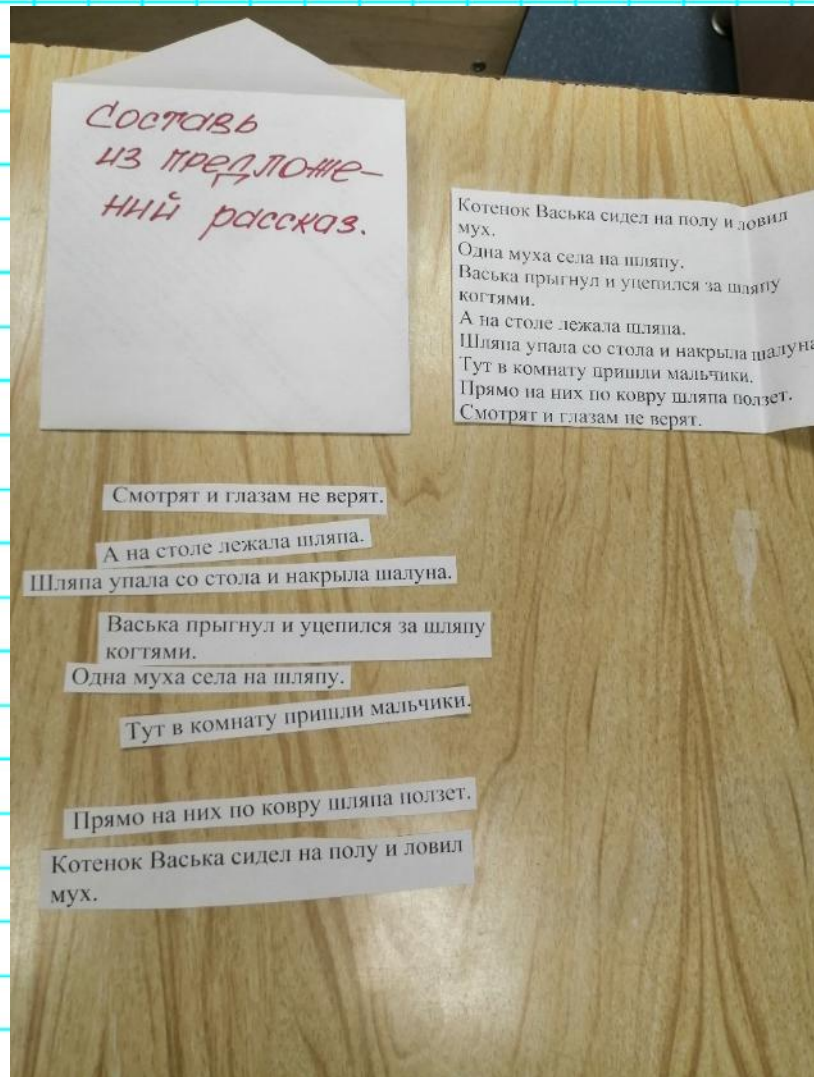 Составь
из предложе-
ний рассказ.
Котенок Васька сидел на полу и ловил
мух.
Одна муха села на шляпу.
Васька прыгнул и уцепился за шляпу
когтями.
А на столе лежала шляпа.
Шляпа упала со стола и накрыла шалуна
Тут в комнату пришли мальчики.
Прямо на них по ковру шляпа ползет.
Смотрят и глазам не верят.
Смотрят и глазам не верят.
А на столе лежала шляпа.
Шляпа упала со стола и накрыла шалуна.
Васька прыгнул и уцепился за шляпу
когтями.
Одна муха села на шляпу.
Тут в комнату пришли мальчики.
Прямо на них по ковру шляпа ползет.
Котенок Васька сидел на полу и ловил
мух.